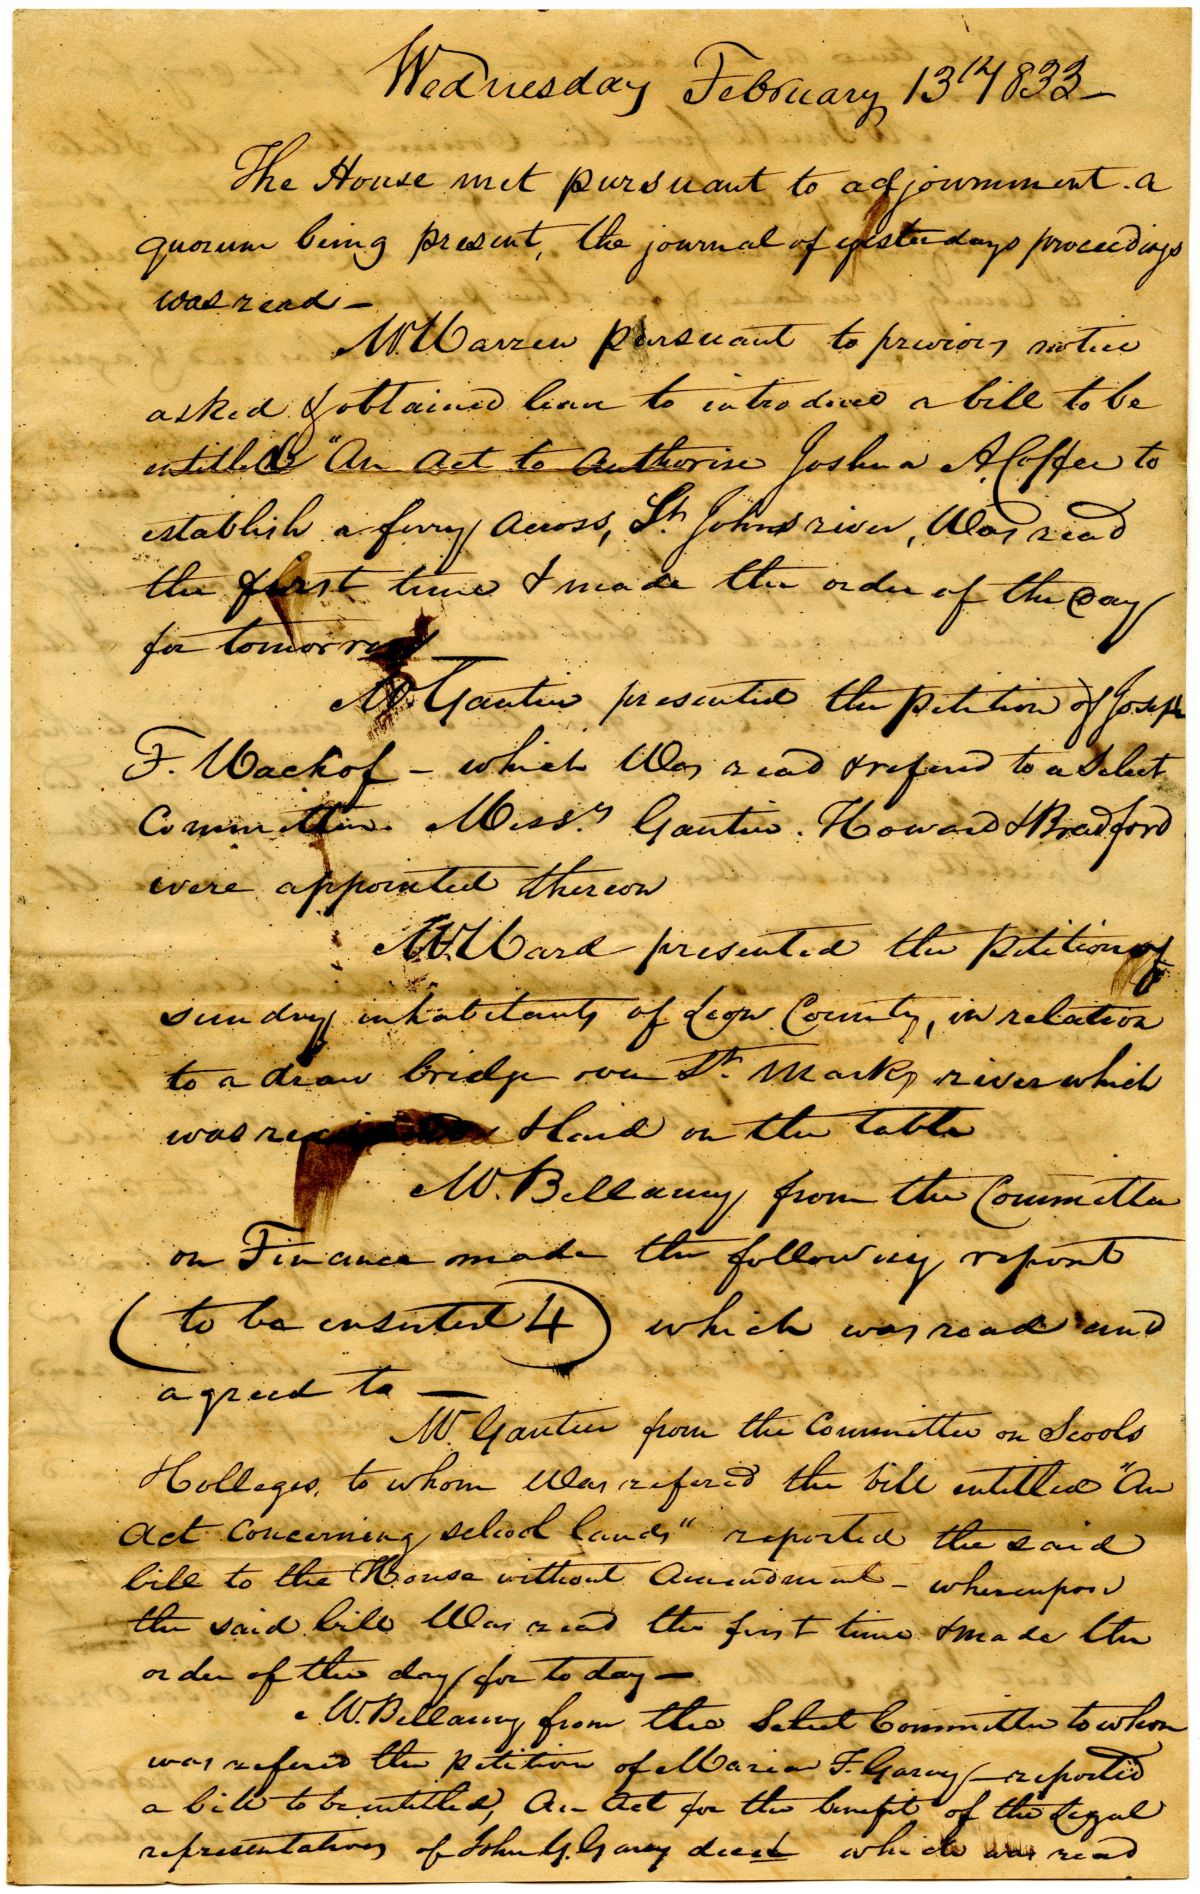 Wednesday February 13th 1833—
The House met pursuant to adjournment. a
quorum being present, the journal of yesterdays proceedings
was read—
Mr. Warren pursuant to previous notice
asked & obtained leave to introduce a bill to be
entitled "An act to authorise Joshua A. Coffee to
establish a ferry across, St. Johns river, Was read
the first time & made the order of the day
for tomorrow—
Mr. Gautier presented the petition of Joseph
F. Wackof — which Was read & refered to a select
Committee. Messrs. Gautier. Howard & Bradford
were appointed thereon
Mr. Ward presented the petition of
sundry inhabitants of Leon County, in relation
to a draw bridge over St. Marks river which
was & laid on the table
Mr. Bellamy from the Committee
on Finance made the following report
(to be inserted 4) which was read and
agreed to —
Mr. Gautier from the Committee on Scools
& Colleges, to whom Was refered the bill entitled "An
act concerning school lands" reported the said
bill to the House without Amendment — whereupon
the said bill Was read the first time & made the
order of the day for to day —
Mr. Bellamy from the Select Committee to whom
was refered the petition of Maria F. Garey — reported
a bill to be entitled, An act for the benefit of the Legal
representatives of John G. Garey decd which was read